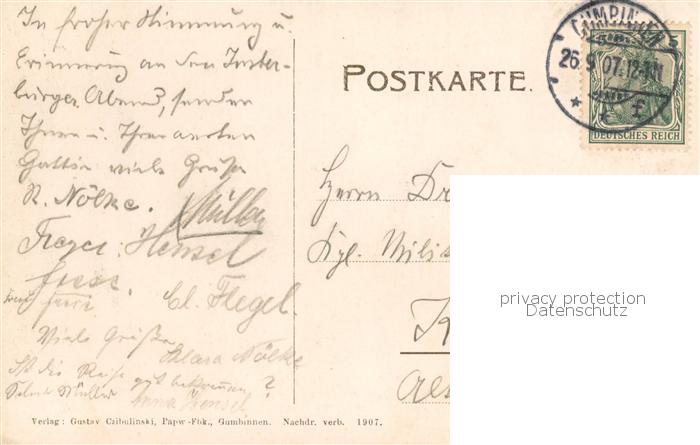 In froher Stimmung u.
Erinnerung an den Inster-
burger Abend, senden
Ihnen u. Ihrer werten
Gattin viele Grüße
R. Nölke. Müller
Hensel
Cl. Flegel.
Viele Grüße
Klara Nölke
Ist die Reise gut bekommen?
Selma Müller Anna Hensel
Verlag: Gustav Czibulinski, Papw-Fbk., Gumbinnen. Nachdr. verb. 1907.
POSTKARTE.
GUMBINNEN
26.9.07. 12-1N
* f
5
DEUTSCHES REICH
Herrn Dr
Kgl. Milit
K
privacy protection
Datenschutz